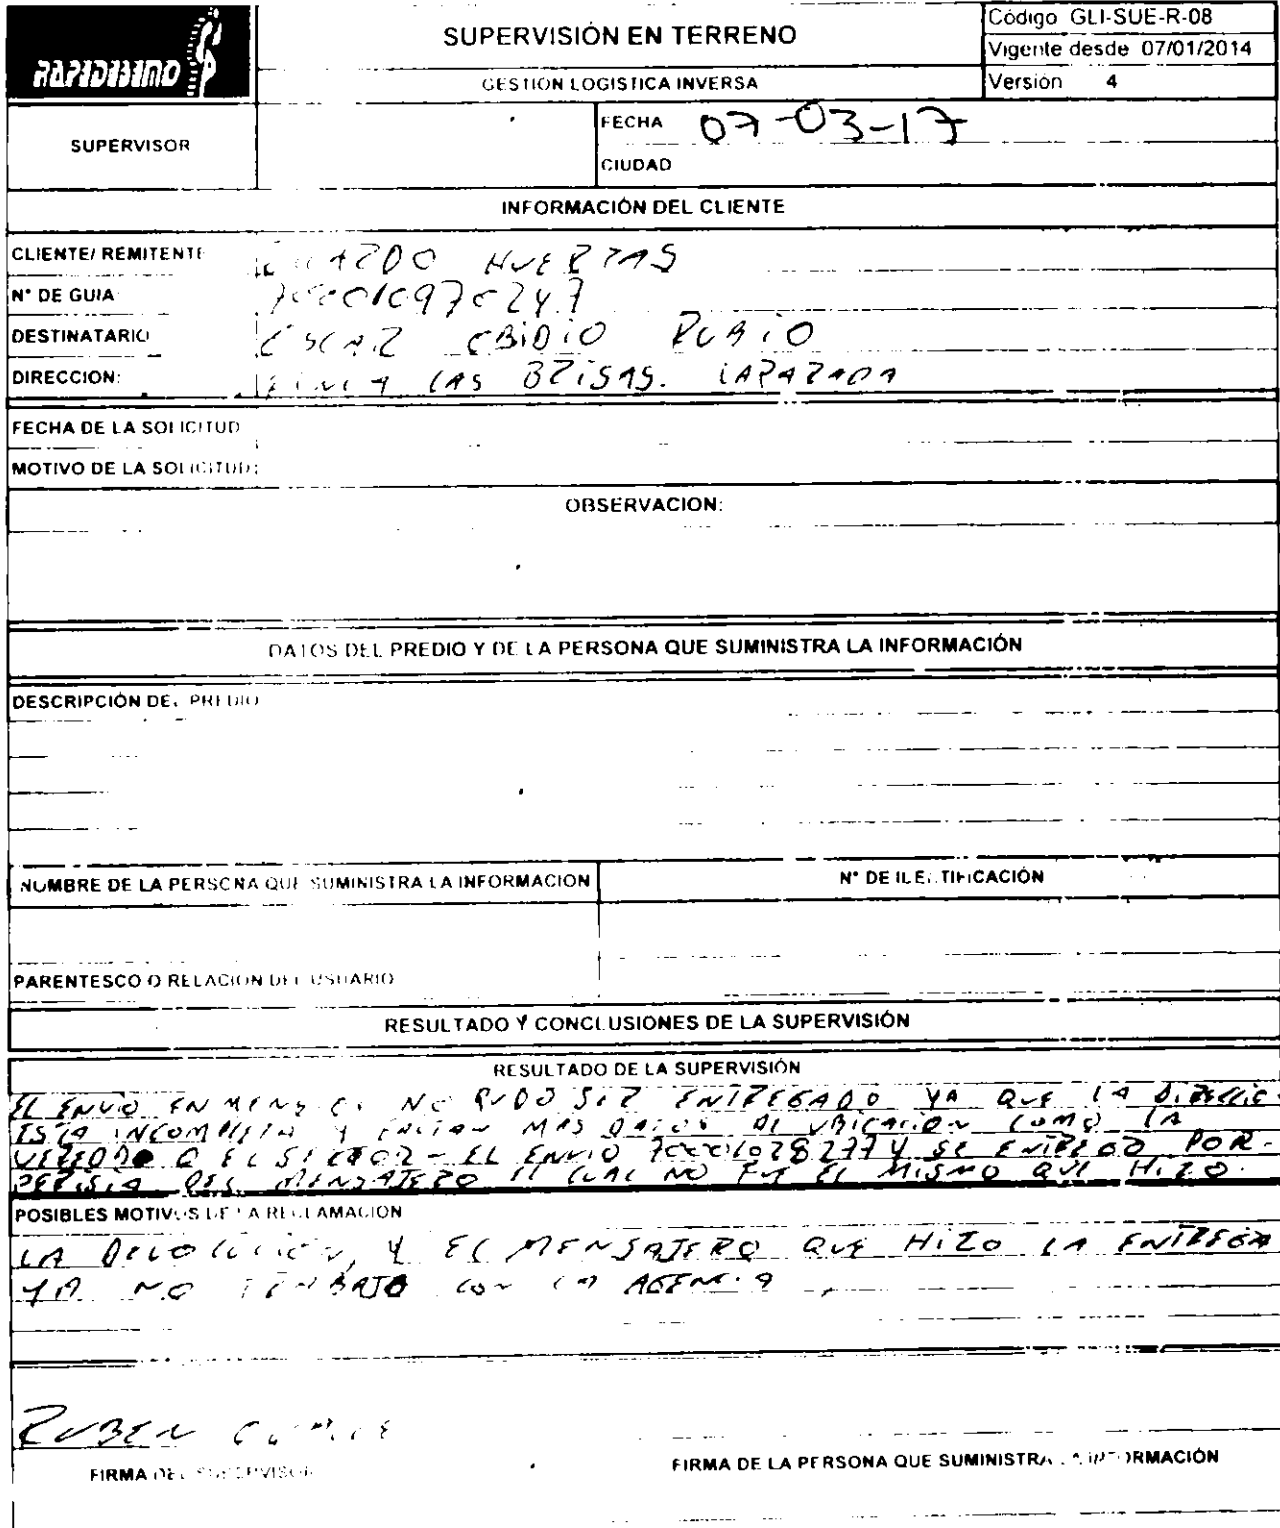 RAPIDISIMO
SUPERVISIÓN EN TERRENO
GESTION LOGISTICA INVERSA
Código GLI-SUE-R-08
Vigente desde 07/01/2014
Versión 4
SUPERVISOR
FECHA 07-03-17
CIUDAD
INFORMACIÓN DEL CLIENTE
CLIENTE/ REMITENTE HUERTAS
N° DE GUIA:
DESTINATARIO RUBIO
DIRECCION: LAS BRISAS.
FECHA DE LA SOLICITUD
MOTIVO DE LA SOLICITUD:
OBSERVACION:
DATOS DEL PREDIO Y DE LA PERSONA QUE SUMINISTRA LA INFORMACIÓN
DESCRIPCIÓN DEL PREDIO
NOMBRE DE LA PERSONA QUE SUMINISTRA LA INFORMACION
N° DE IDENTIFICACIÓN
PARENTESCO O RELACION DEL USUARIO
RESULTADO Y CONCLUSIONES DE LA SUPERVISIÓN
RESULTADO DE LA SUPERVISIÓN
EL ENVIO EN NO PUDO SER ENTREGADO YA QUE LA
ESTA INCOMPLETA Y FALTAN MAS DATOS DE UBICACION COMO LA
VEREDA O EL SECTOR - EL ENVIO SE ENTREGO POR
DEL MENSAJERO EL CUAL NO FUE EL MISMO QUE HIZO
POSIBLES MOTIVOS DE LA RECLAMACION
LA DEVOLUCION, Y EL MENSAJERO QUE HIZO LA ENTREGA
YA NO TRABAJO CON LA AGENCIA
RUBEN
FIRMA DEL SUPERVISOR
FIRMA DE LA PERSONA QUE SUMINISTRA LA INFORMACIÓN